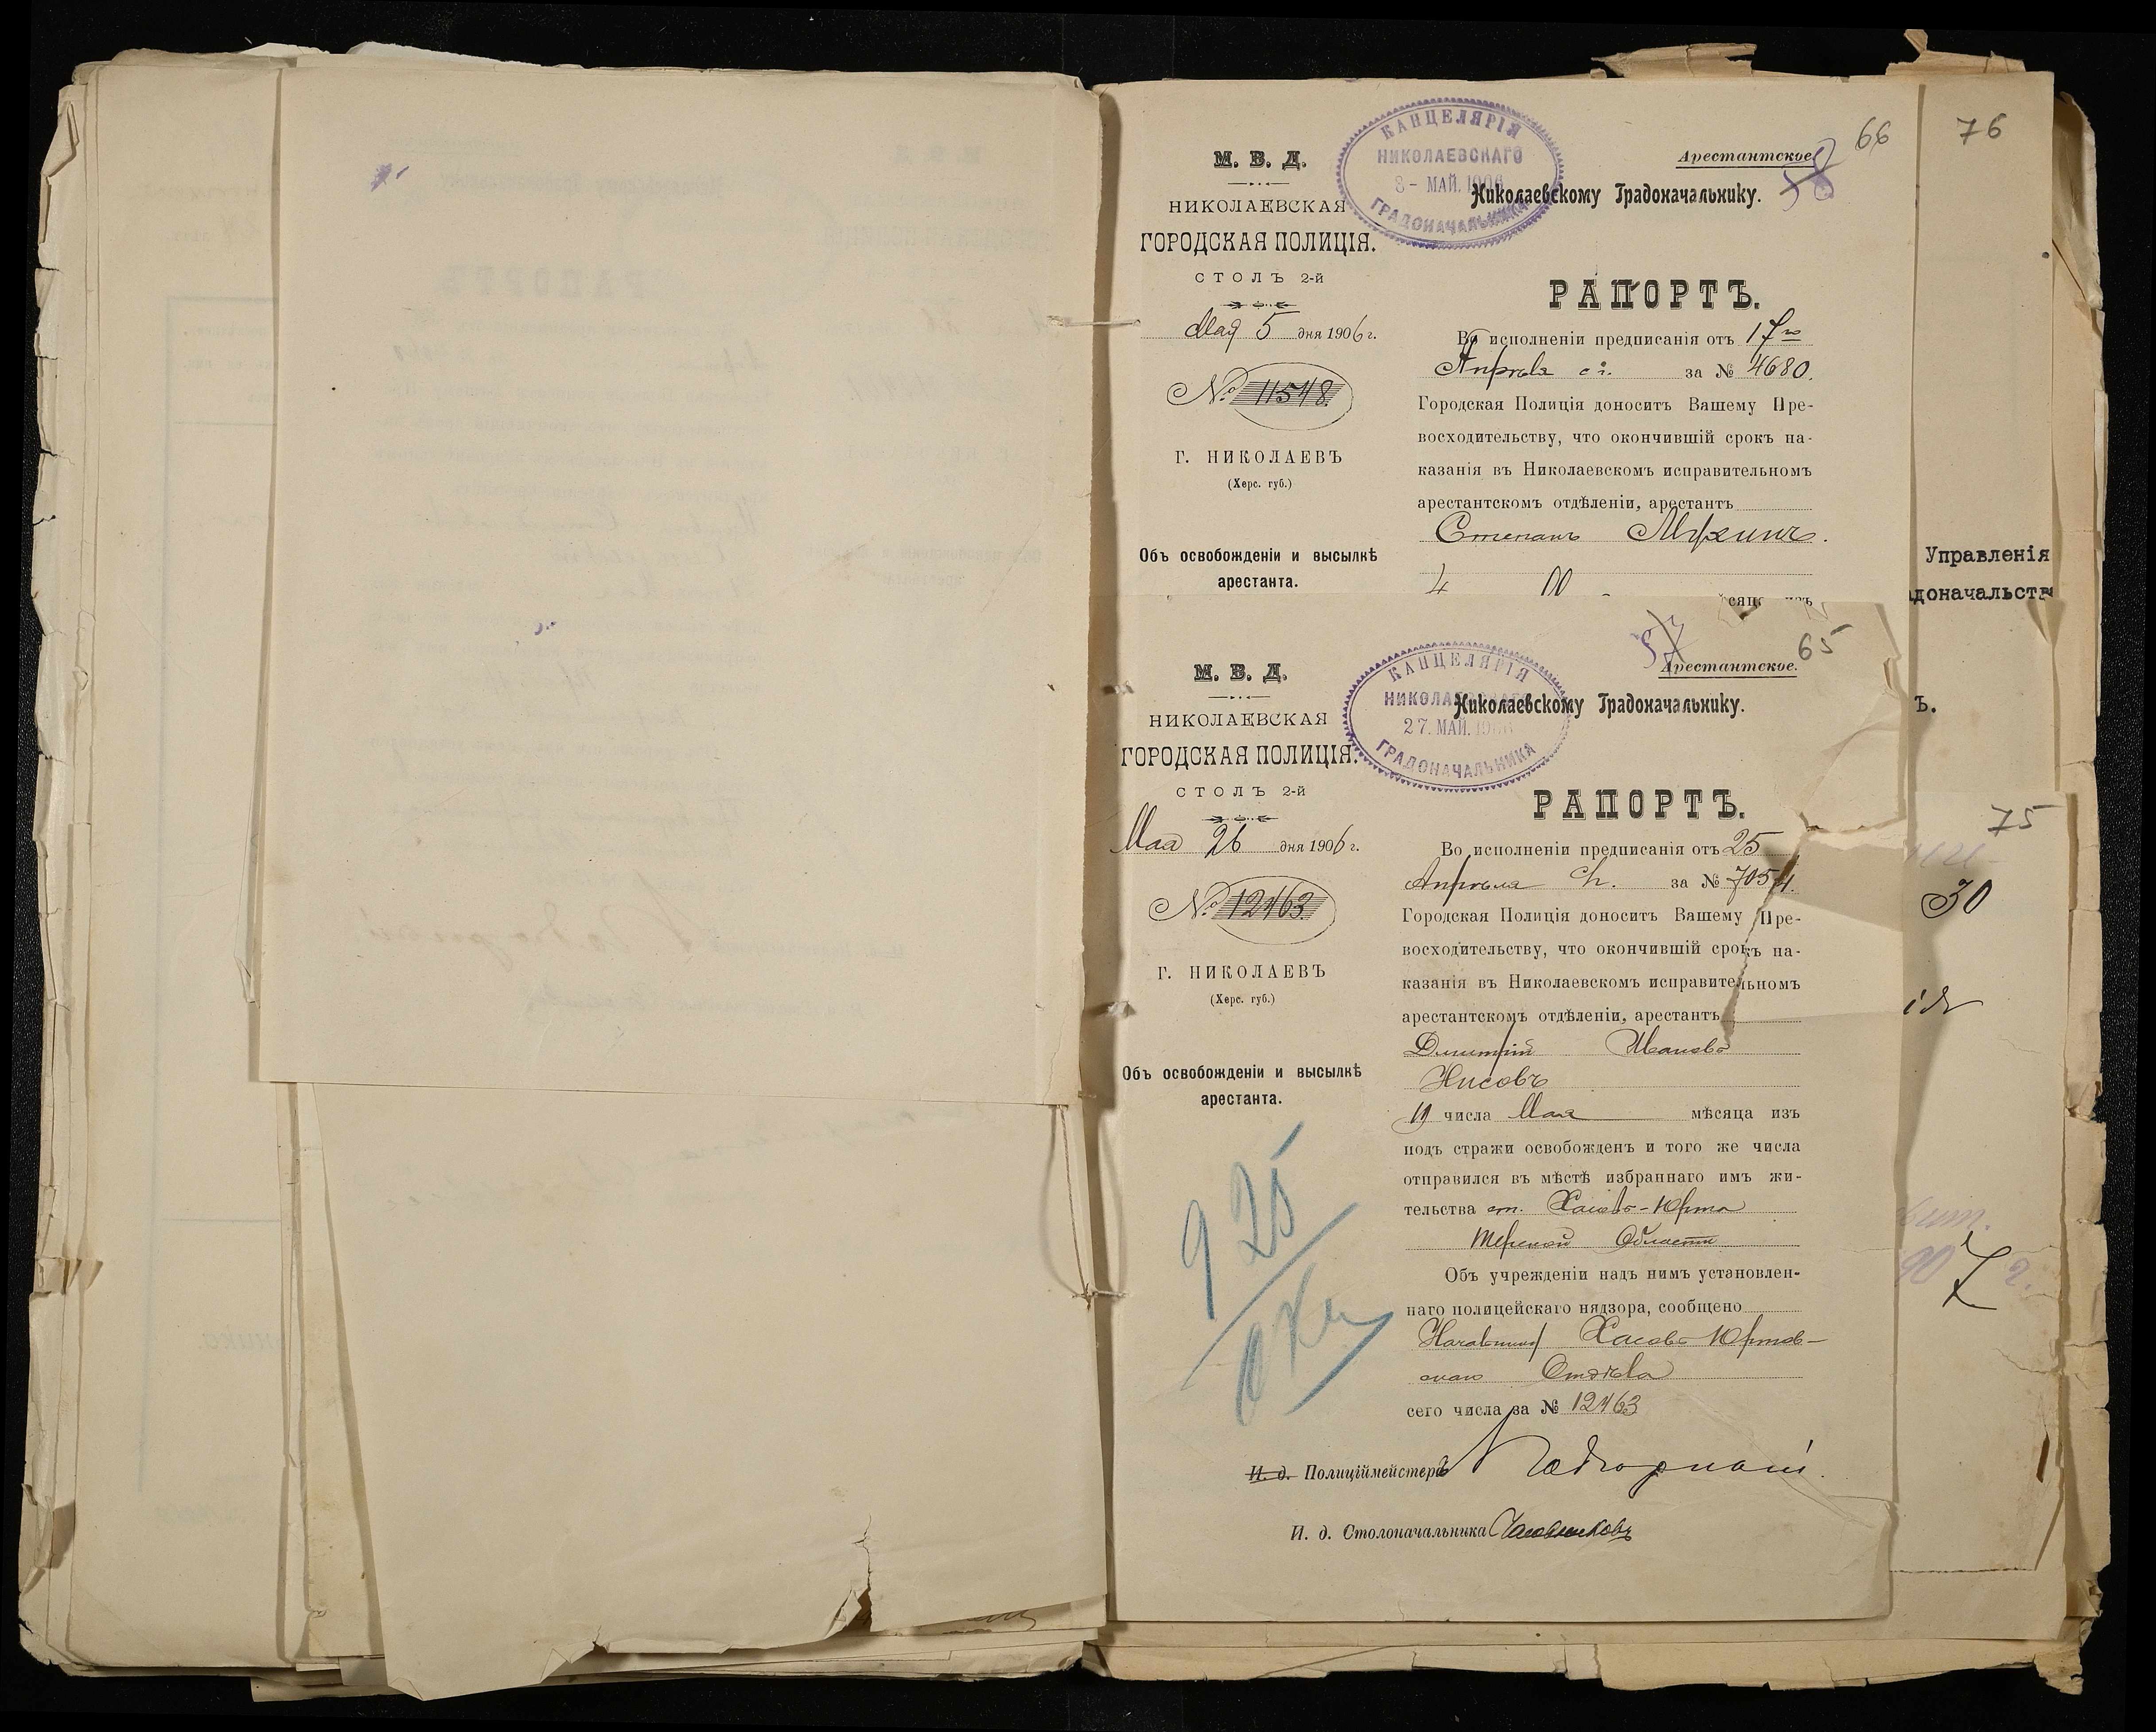 66
76
КАНЦЕЛЯРІЯ
НИКОЛАЕВСКАГО
8 - МАЙ. 1906
ГРАДОНАЧАЛЬНИКА
М. В. Д.
НИКОЛАЕВСКАЯ
ГОРОДСКАЯ ПОЛИЦІЯ.
СТОЛЪ 2-й
Мая 5 дня 1906 г.
№ 11548.
Г. НИКОЛАЕВЪ
(Херс. губ.)
Объ освобожденіи и высылкѣ
арестанта.
Арестантское
58
Николаевскому Градоначальнику.
РАПОРТЪ.
Во исполненіи предписанія отъ 17го
Апрѣля с г. за № 4680.
Городская Полиція доноситъ Вашему Пре-
восходительству, что окончившій срокъ на-
казанія въ Николаевскомъ исправительномъ
арестантскомъ отдѣленіи, арестантъ
Степанъ
4
Управленія
адоначальств
Ъ.
57
65
КАНЦЕЛЯРІЯ
НИКОЛАЕВСКАГО
27. МАЙ. 1906
ГРАДОНАЧАЛЬНИКА
М. В. Д.
НИКОЛАЕВСКАЯ
ГОРОДСКАЯ ПОЛИЦІЯ.
СТОЛЪ 2-й
Мая 26 дня 1906 г.
№ 12463
Г. НИКОЛАЕВЪ
(Херс. губ.)
Объ освобожденіи и высылкѣ
арестанта.
925
Арестантское.
Николаевскому Градоначальнику.
РАПОРТЪ.
Во исполненіи предписанія отъ 25
Апрѣля за № 7054.
Городская Полиція доноситъ Вашему Пре-
восходительству, что окончившій срокъ на-
казанія въ Николаевскомъ исправительномъ
арестантскомъ отдѣленіи, арестантъ
Дмитрій Ивановъ
Нисовъ
19 числа Мая мѣсяца изъ
подъ стражи освобожденъ и того же числа
отправился въ мѣстѣ избраннаго имъ жи-
тельства ст. Хасавъ-Юрта
Терской Области
Объ учрежденіи надъ нимъ установлен-
наго полицейскаго нядзора, сообщено
Начальнику Хасавъ-Юртов-
скаго Отдѣла
сего числа за № 12463
И. д. Полиціймейстеръ Подгорный.
И. д. Столоначальника Часовниковъ
75
30